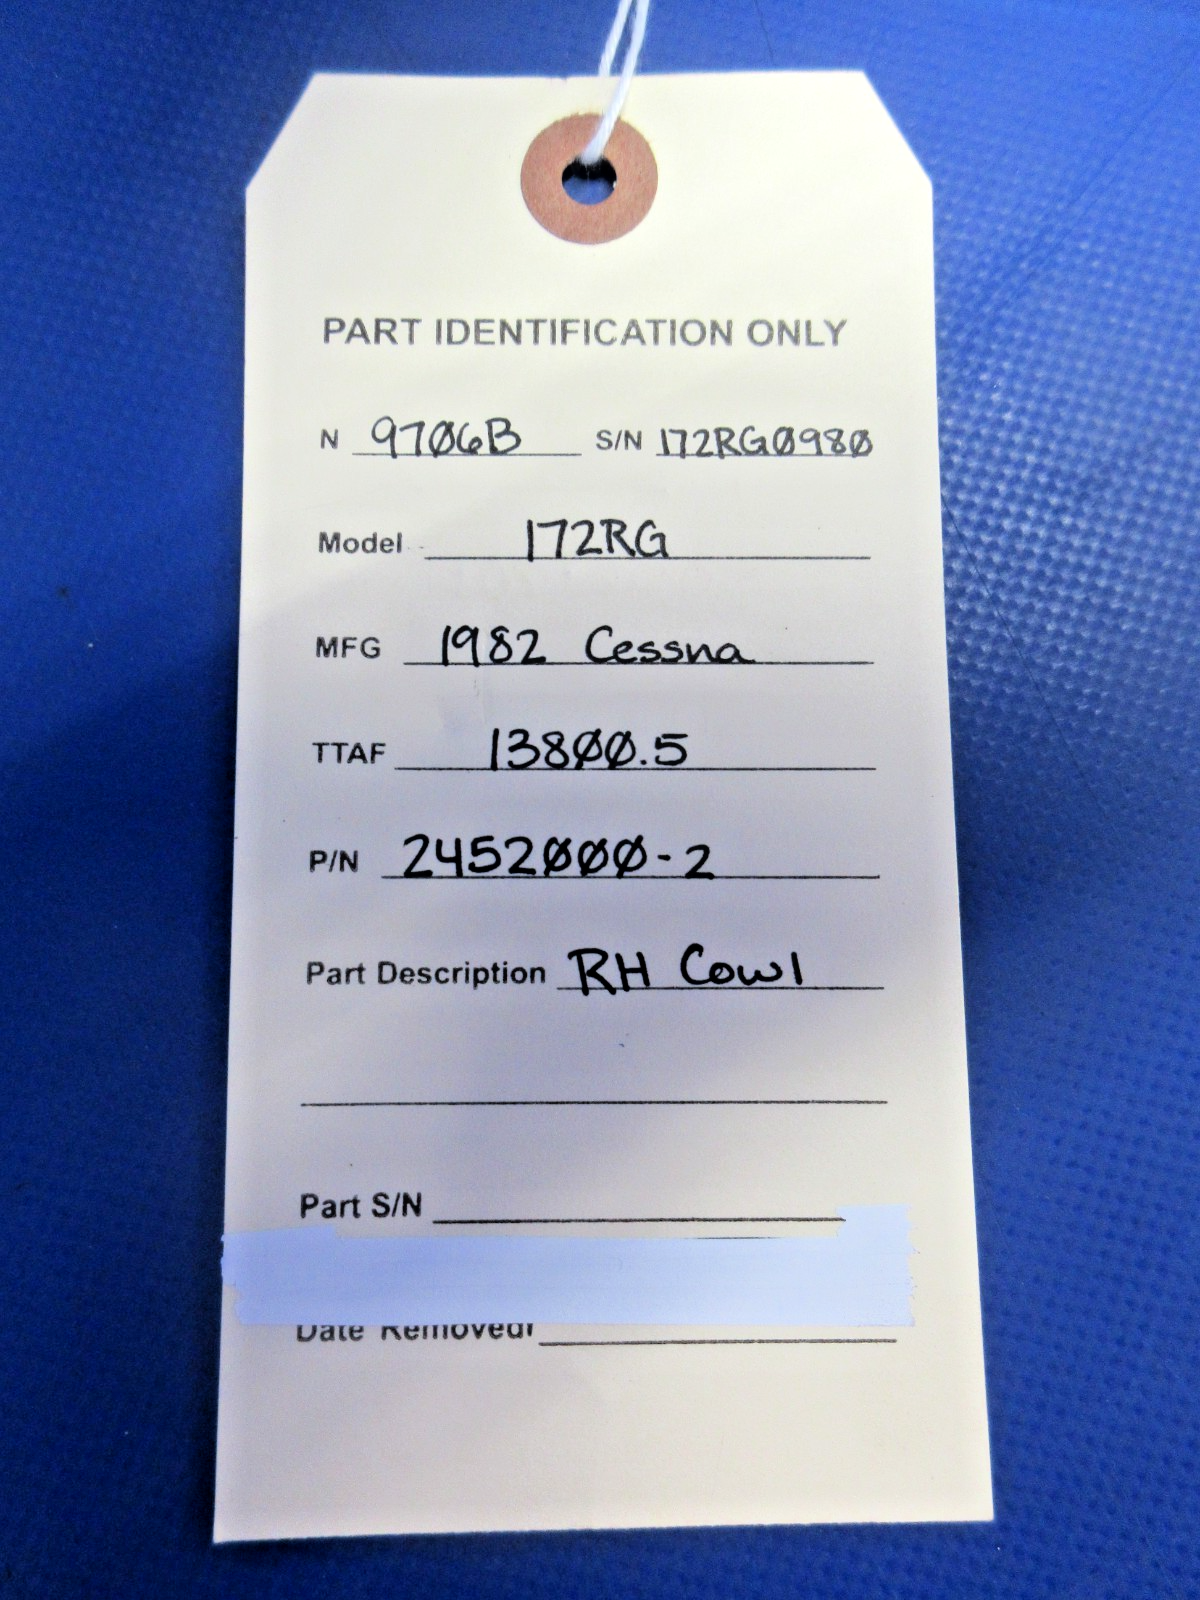 PART IDENTIFICATION ONLY
N 9706B S/N 172RG0980
Model 172RG
MFG 1982 Cessna
TTAF 13800.5
P/N 2452000-2
Part Description RH Cowl
Part S/N
Date Removed